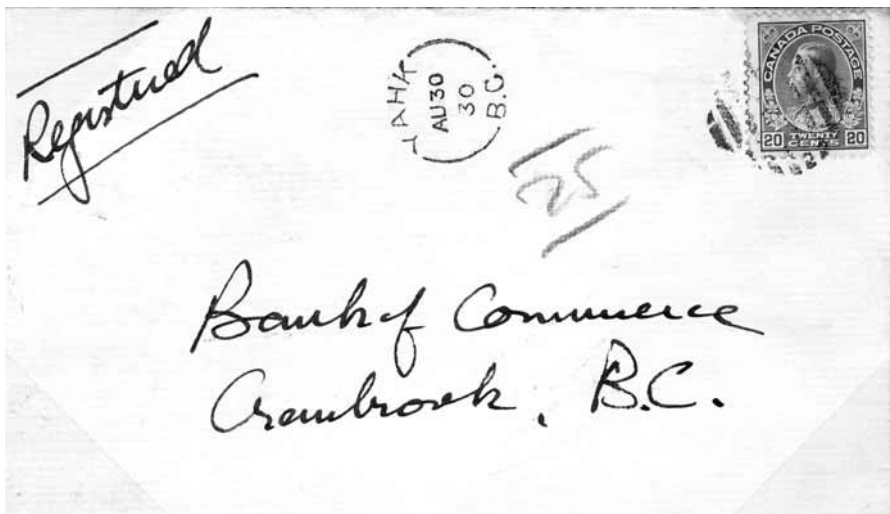 Registered
YAHK
AU 30
30
B.C.
CANADA POSTAGE
TWENTY
20 CENTS 20
25
Bank of Commerce
Cranbrook, B.C.